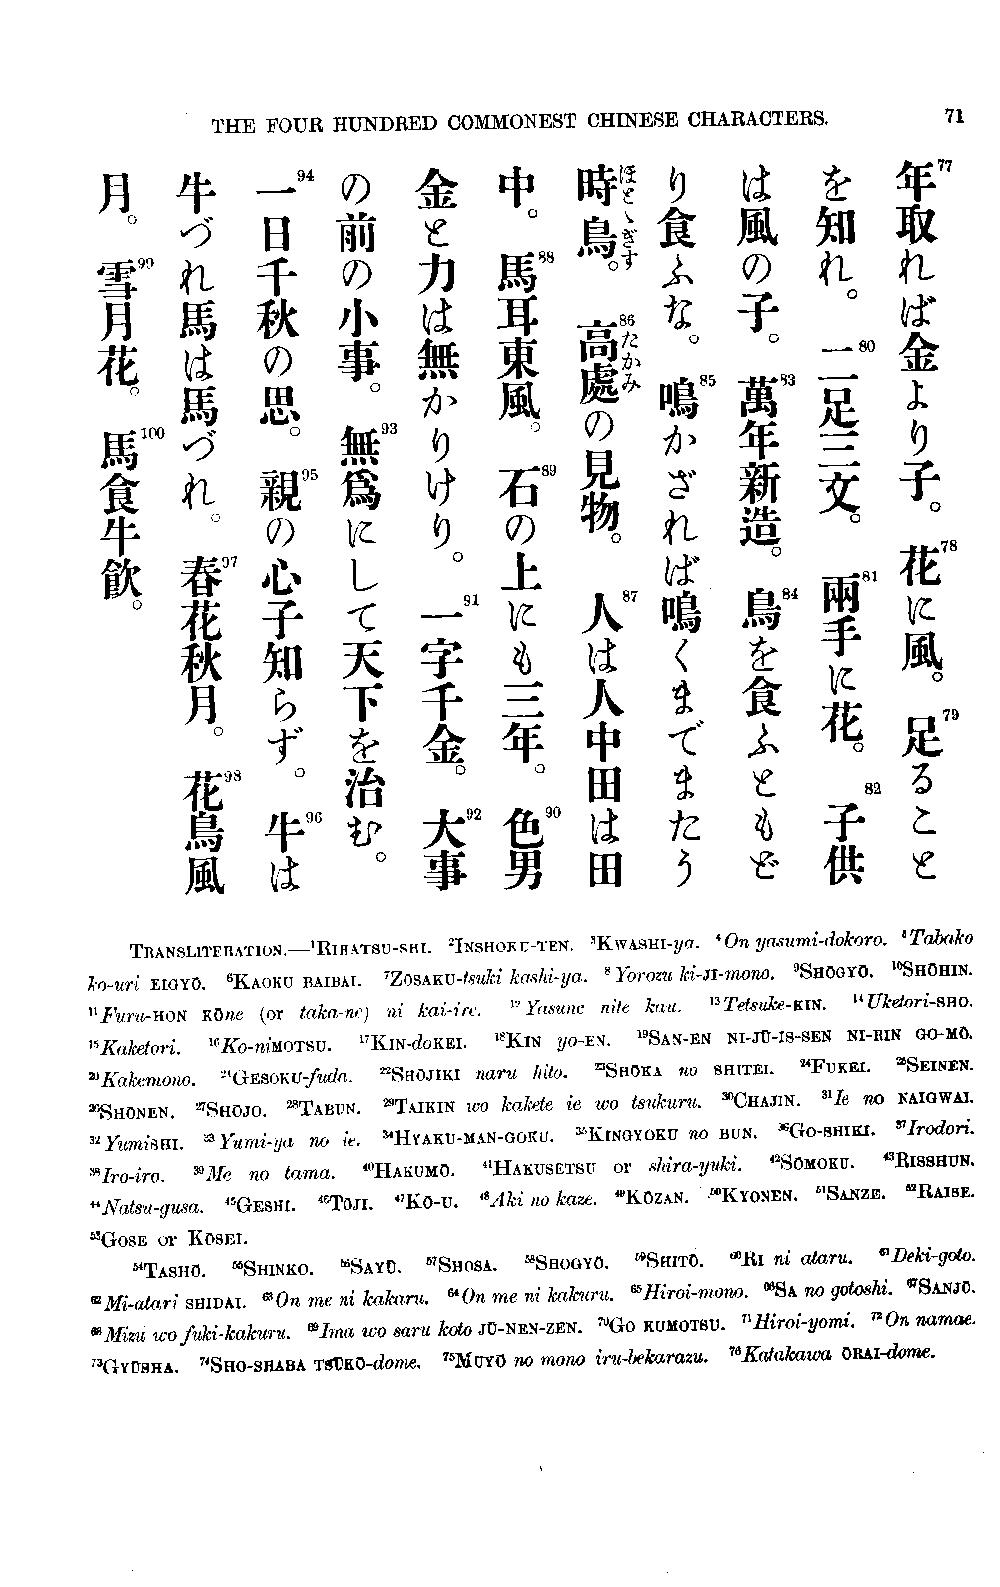 THE FOUR HUNDRED COMMONEST CHINESE CHARACTERS. 71
年77取れば金より子。花78に風。足79ること
を知れ。一80二足三文。兩81手に花。82子供
は風の子。萬83年新造。鳥84を食ふともど
り食ふな。鳴85かざれば鳴くまでまたう
時鳥ほとゝぎす。高處86たかみの見物。人87は人中田は田
中。馬88耳東風。石89の上にも三年。色90男
金と力は無かりけり。一91字千金。大92事
の前の小事。無93爲にして天下を治む。
一94日千秋の思。親95の心子知らず。牛96は
牛づれ馬は馬づれ。春97花秋月。花98鳥風
月。雪99月花。馬100食牛飮。
TRANSLITERATION.—¹RIHATSU-SHI. ²INSHOKU-TEN. ³KWASHI-ya. ⁴On yasumi-dokoro. ⁵Tabako
ko-uri EIGYŌ. ⁶KAOKU BAIBAI. ⁷ZŌSAKU-tsuki kashi-ya. ⁸Yorozu ki-JI-mono. ⁹SHŌGYŌ. ¹⁰SHŌHIN.
¹¹Furu-HON KŌne (or taka-ne) ni kai-ire. ¹²Yasune nite kau. ¹³Tetsuke-KIN. ¹⁴Uketori-SHO.
¹⁵Kaketori. ¹⁶Ko-niMOTSU. ¹⁷KIN-doKEI. ¹⁸KIN yo-EN. ¹⁹SAN-EN NI-JŪ-IS-SEN NI-RIN GO-MŌ.
²⁰Kakemono. ²¹GESOKU-fuda. ²²SHŌJIKI naru hito. ²³SHŌKA no SHITEI. ²⁴FUKEI. ²⁵SEINEN.
²⁶SHŌNEN. ²⁷SHŌJO. ²⁸TABUN. ²⁹TAIKIN wo kakete ie wo tsukuru. ³⁰CHAJIN. ³¹Ie no NAIGWAI.
³²YumiSHI. ³³Yumi-ya no ie. ³⁴HYAKU-MAN-GOKU. ³⁵KINGYOKU no BUN. ³⁶GO-SHIKI. ³⁷Irodori.
³⁸Iro-iro. ³⁹Me no tama. ⁴⁰HAKUMŌ. ⁴¹HAKUSETSU or shira-yuki. ⁴²SŌMOKU. ⁴³RISSHUN.
⁴⁴Natsu-gusa. ⁴⁵GESHI. ⁴⁶TŌJI. ⁴⁷KŌ-U. ⁴⁸Aki no kaze. ⁴⁹KŌZAN. ⁵⁰KYONEN. ⁵¹SANZE. ⁵²RAISE.
⁵³GOSE or KŌSEI.
⁵⁴TASHŌ. ⁵⁵SHINKO. ⁵⁶SAYŪ. ⁵⁷SHOSA. ⁵⁸SHOGYŌ. ⁵⁹SHITŌ. ⁶⁰RI ni ataru. ⁶¹Deki-goto.
⁶²Mi-atari SHIDAI. ⁶³On me ni kakaru. ⁶⁴On me ni kakuru. ⁶⁵Hiroi-mono. ⁶⁶SA no gotoshi. ⁶⁷SANJŌ.
⁶⁸Mizu wo fuki-kakuru. ⁶⁹Ima wo saru koto JŪ-NEN-ZEN. ⁷⁰GO KUMOTSU. ⁷¹Hiroi-yomi. ⁷²On namae.
⁷³GYŪSHA. ⁷⁴SHO-SHABA TSŪKŌ-dome. ⁷⁵MUYŌ no mono iru-bekarazu. ⁷⁶Katakawa ŌRAI-dome.